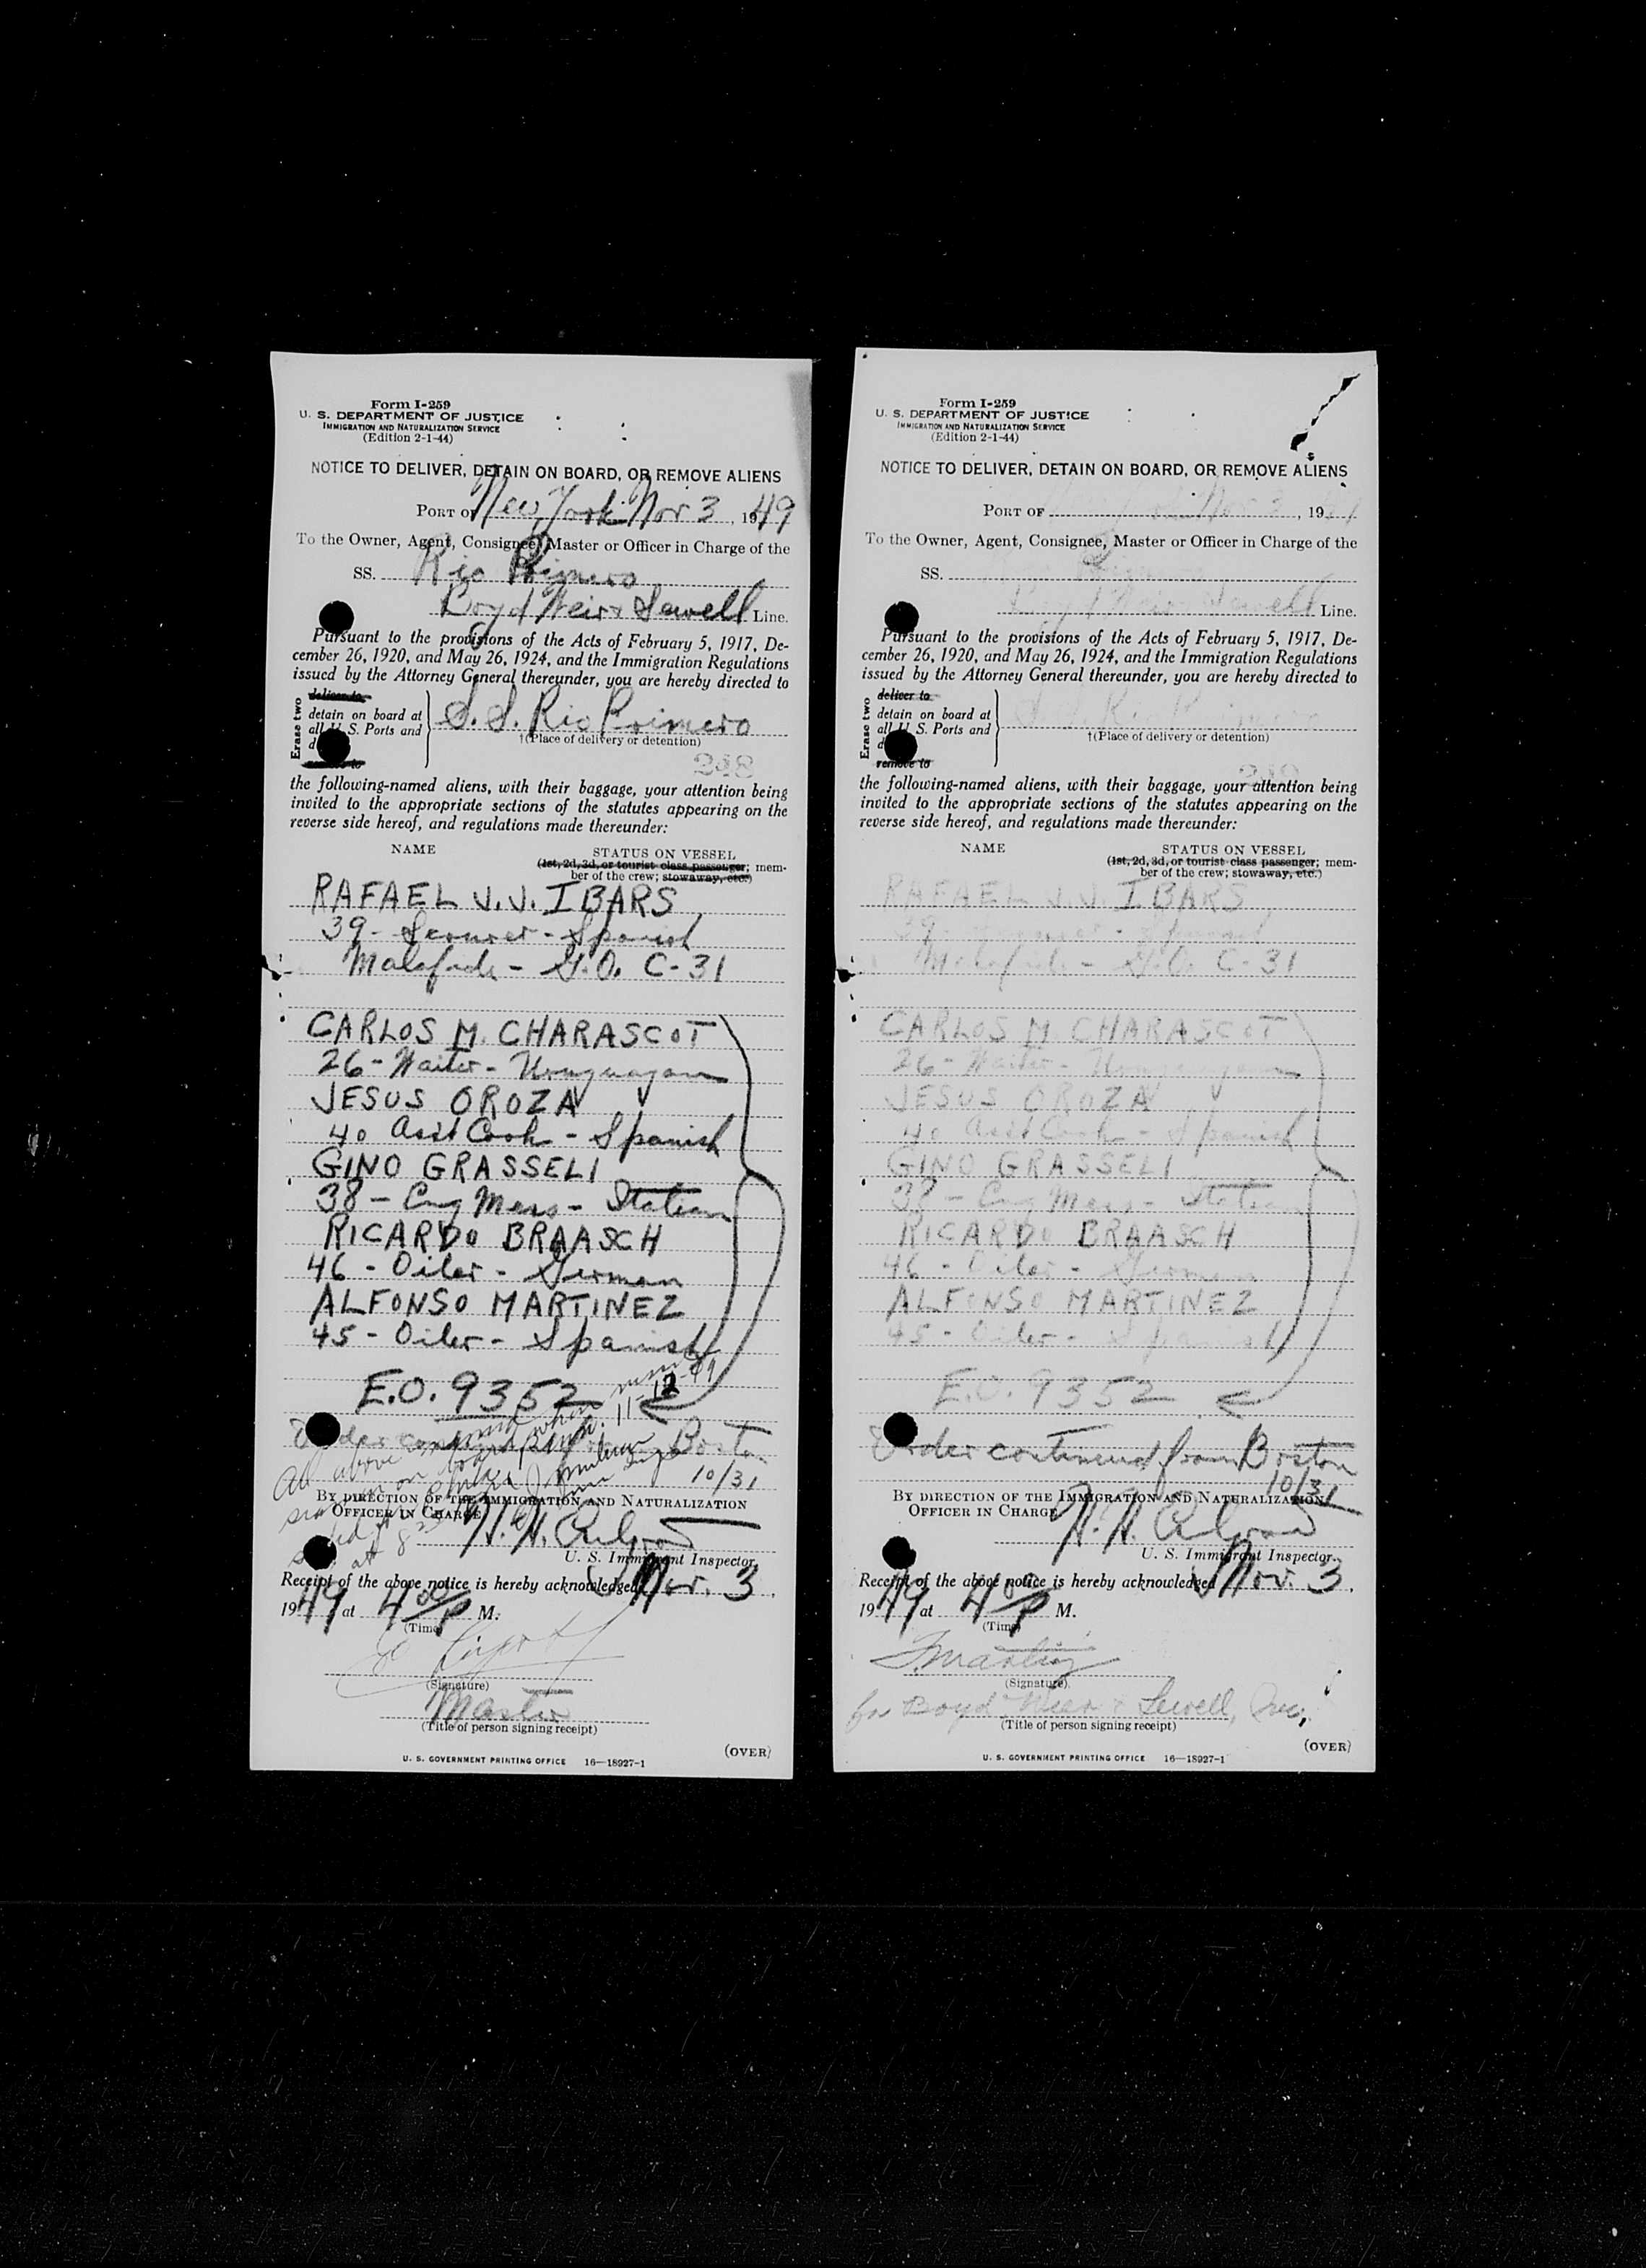 Form I-259
U. S. DEPARTMENT OF JUSTICE
IMMIGRATION AND NATURALIZATION SERVICE
(Edition 2-1-44)
NOTICE TO DELIVER, DETAIN ON BOARD, OR REMOVE ALIENS
PORT OF New York Nov 3, 1949
To the Owner, Agent, Consignee, Master or Officer in Charge of the
SS. Rio Primero
Boyd Weir & Sewell Line.
Pursuant to the provisions of the Acts of February 5, 1917, De-
cember 26, 1920, and May 26, 1924, and the Immigration Regulations
issued by the Attorney General thereunder, you are hereby directed to
Erase two
deliver to
detain on board at
all U. S. Ports and
remove to
S. S. Rio Primero
†(Place of delivery or detention)
248
the following-named aliens, with their baggage, your attention being
invited to the appropriate sections of the statutes appearing on the
reverse side hereof, and regulations made thereunder:
NAME
STATUS ON VESSEL
(1st, 2d, 3d, or tourist class passenger; mem-
ber of the crew; stowaway, etc.)
RAFAEL J. J. IBARS
39 - - Spanish
Malafide - G.O. C-31
CARLOS M. CHARASCOT
26 - Waiter - Uruguayan
JESUS OROZA
40 Asst Cook - Spanish
GINO GRASSELI
38 - Eng Mess - Italian
RICARDO BRAASCH
46 - Oiler - German
ALFONSO MARTINEZ
45 - Oiler - Spanish
E.O. 9352
Order continued from Boston
10/31
All above when
on board
at 8
BY DIRECTION OF THE IMMIGRATION AND NATURALIZATION
OFFICER IN CHARGE
U. S. Immigrant Inspector.
Receipt of the above notice is hereby acknowledged Nov. 3,
1949 at 4 00 P M.
(Time)
(Signature)
Master
(Title of person signing receipt)
(OVER)
U. S. GOVERNMENT PRINTING OFFICE 16—18927-1
Form I-259
U. S. DEPARTMENT OF JUSTICE
IMMIGRATION AND NATURALIZATION SERVICE
(Edition 2-1-44)
NOTICE TO DELIVER, DETAIN ON BOARD, OR REMOVE ALIENS
PORT OF Nov 3, 19
To the Owner, Agent, Consignee, Master or Officer in Charge of the
SS.
Boyd Weir & Sewell Line.
Pursuant to the provisions of the Acts of February 5, 1917, De-
cember 26, 1920, and May 26, 1924, and the Immigration Regulations
issued by the Attorney General thereunder, you are hereby directed to
Erase two
deliver to
detain on board at
all U. S. Ports and
remove to
S. S. Rio Primero
†(Place of delivery or detention)
248
the following-named aliens, with their baggage, your attention being
invited to the appropriate sections of the statutes appearing on the
reverse side hereof, and regulations made thereunder:
NAME
STATUS ON VESSEL
(1st, 2d, 3d, or tourist class passenger; mem-
ber of the crew; stowaway, etc.)
RAFAEL J. J. IBARS
39 - - Spanish
Malafide - G.O. C-31
CARLOS M. CHARASCOT
26 - Waiter - Uruguayan
JESUS OROZA
40 Asst Cook - Spanish
GINO GRASSELI
38 - Eng Mess - Italian
RICARDO BRAASCH
46 - Oiler - German
ALFONSO MARTINEZ
45 - Oiler - Spanish
E.O. 9352
Order continued from Boston
10/31
BY DIRECTION OF THE IMMIGRATION AND NATURALIZATION
OFFICER IN CHARGE
U. S. Immigrant Inspector.
Receipt of the above notice is hereby acknowledged Nov. 3,
1949 at 4 00 P M.
(Time)
(Signature)
for Boyd Weir & Sewell, Inc,
(Title of person signing receipt)
(OVER)
U. S. GOVERNMENT PRINTING OFFICE 16—18927-1